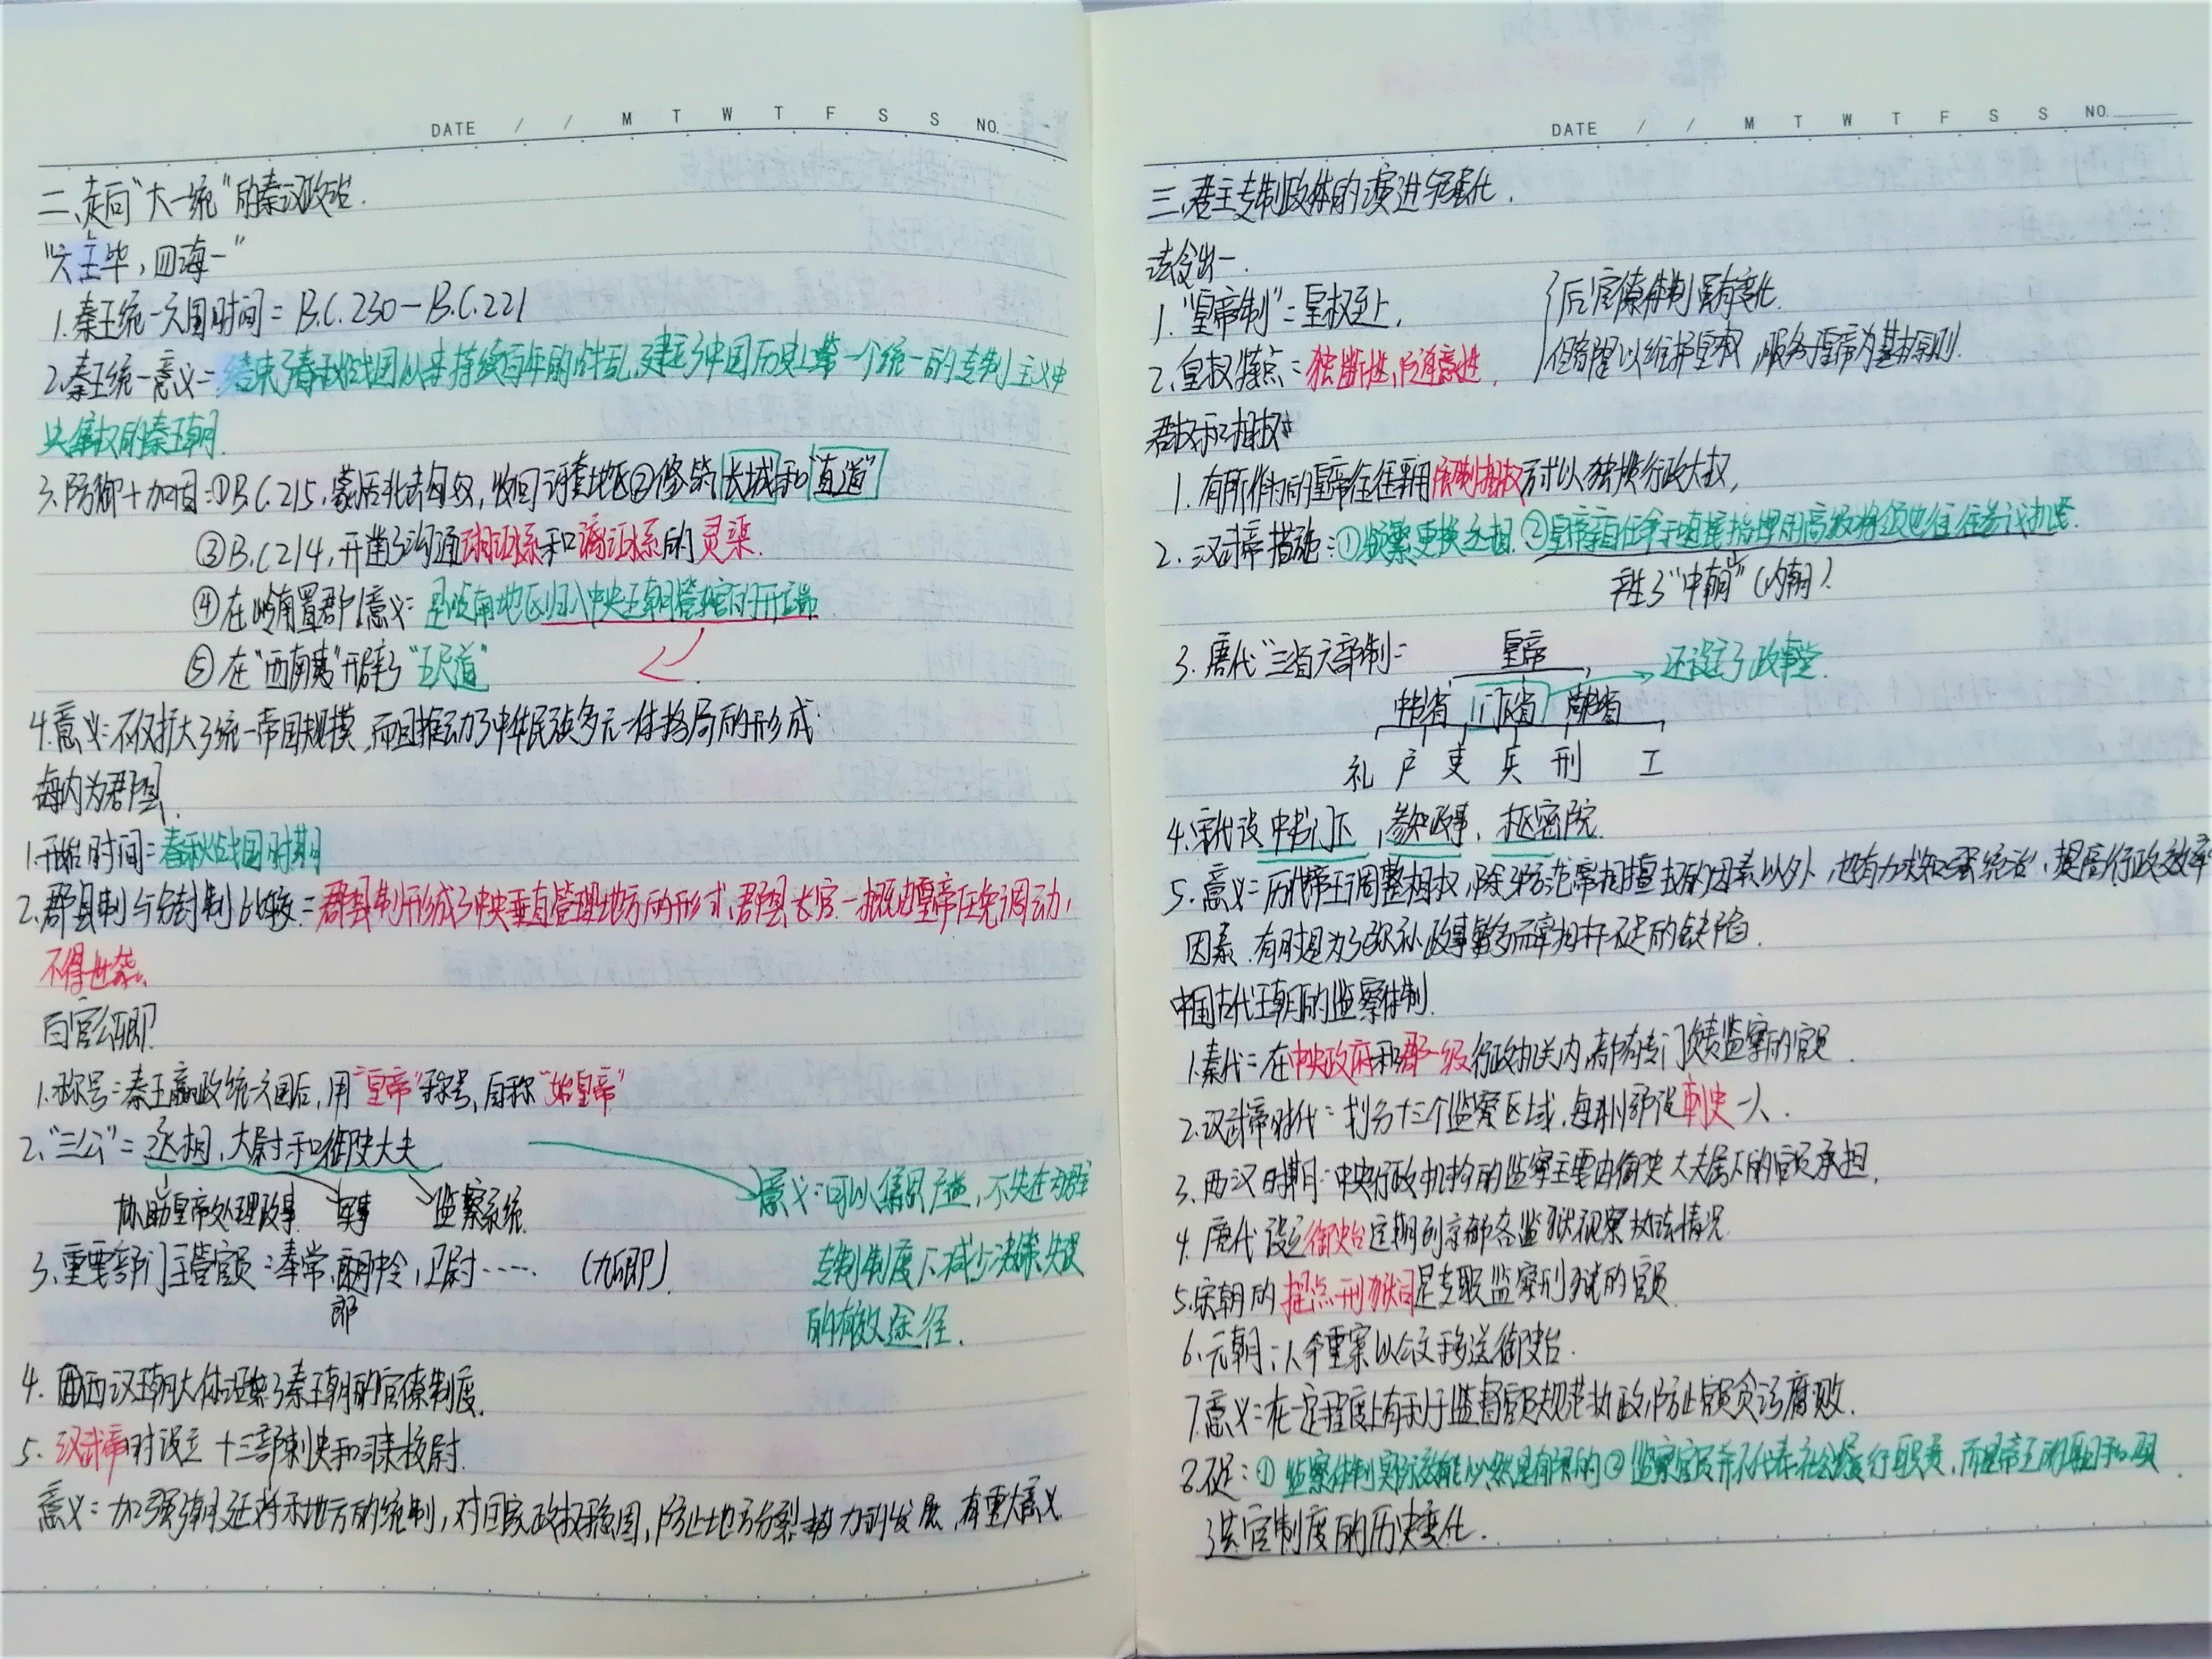 DATE / / M T W T F S S NO.
二、走向"大一统"的秦汉政治.
"六王毕，四海一"
1.秦王统一六国时间=B.C.230-B.C.221
2.秦王统一意义=结束了春秋战国以来持续百年的战乱,建立了中国历史上第一个统一的专制主义中
央集权的秦王朝.
3.防御+加固:①B.C.215,蒙恬北击匈奴,收回河套地区②修筑长城和"直道"
③B.C214,开凿了沟通湘江水系和漓江水系的灵渠.
④在岭南置郡(意义:是岭南地区归入中央王朝管辖的开端
⑤在"西南夷"开辟了"五尺道"
4.意义:不仅扩大了统一帝国规模,而且推动了中华民族多元一体格局的形成.
海内为郡县.
1.开始时间=春秋战国时期
2.郡县制与分封制比较=郡县制形成了中央垂直管理地方的形式,郡县长官一概由皇帝任免调动,
不得世袭.
百官公卿
1.称号:秦王嬴政统六国后,用"皇帝"称号,自称"始皇帝"
2."三公"=丞相,太尉和御史大夫
协助皇帝处理政事 军事 监察系统.
意义:可以集思广益,不失在
专制制度下减少决策失误
的有效途径.
3.重要部门主管官员:奉常,郎中令,卫尉…… (九卿)
郎
4.西汉王朝大体沿袭了秦王朝的官僚制度.
5.汉武帝时设立十三部刺史和司隶校尉.
意义=加强朝廷对地方的统制,对国家政权稳固,防止地方分裂势力的发展,有重大意义
DATE / / M T W T F S S NO.
三、君主专制政体的演进与强化.
法令出一.
1."皇帝制"=皇权至上,
2.皇权特点:独断性,随意性.
后官僚体制虽有变化.
但都是以维护皇权,服务皇帝为基本原则.
君权和相权
1.有所作为的皇帝往往采用限制相权方式以独揽行政大权,
2.汉武帝措施:①频繁更换丞相.②皇帝亲自任命直接指挥的高级将领也往往参议政.
产生了"中朝"(内朝)
3.唐代"三省六部制= 皇帝 还设立了政事堂.
中书省 门下省 尚书省
礼 户 吏 兵 刑 工
4.宋代设中书门下,参知政事,枢密院.
5.意义=历代帝王调整相权,除了防范宰相擅权的因素以外,也有力求加强统治,提高行政效率
因素.有时是为了弥补政事繁多而宰相力不足的缺陷.
中国古代王朝的监察体制.
1.秦代=在中央政府和郡一级行政机关内,都有专门负责监察的官员.
2.汉武帝时代=划分十三个监察区域,每州部设刺史一人.
3.西汉时期:中央行政机构的监察主要由御史大夫属下的官员承担.
4.唐代设立御史台定期到京都各监狱视察执法情况.
5.宋朝的提点刑狱司是专职监察刑狱的官员.
6.元朝:人命重案以公文移送御史台.
7.意义:在一定程度上有利于监督官员规范执政,防止官员贪污腐败.
8.不足:①监察体制实际效能必然是有限的②监察官员并不代表社会履行职责,而是帝王的耳目和
选官制度的历史变化.